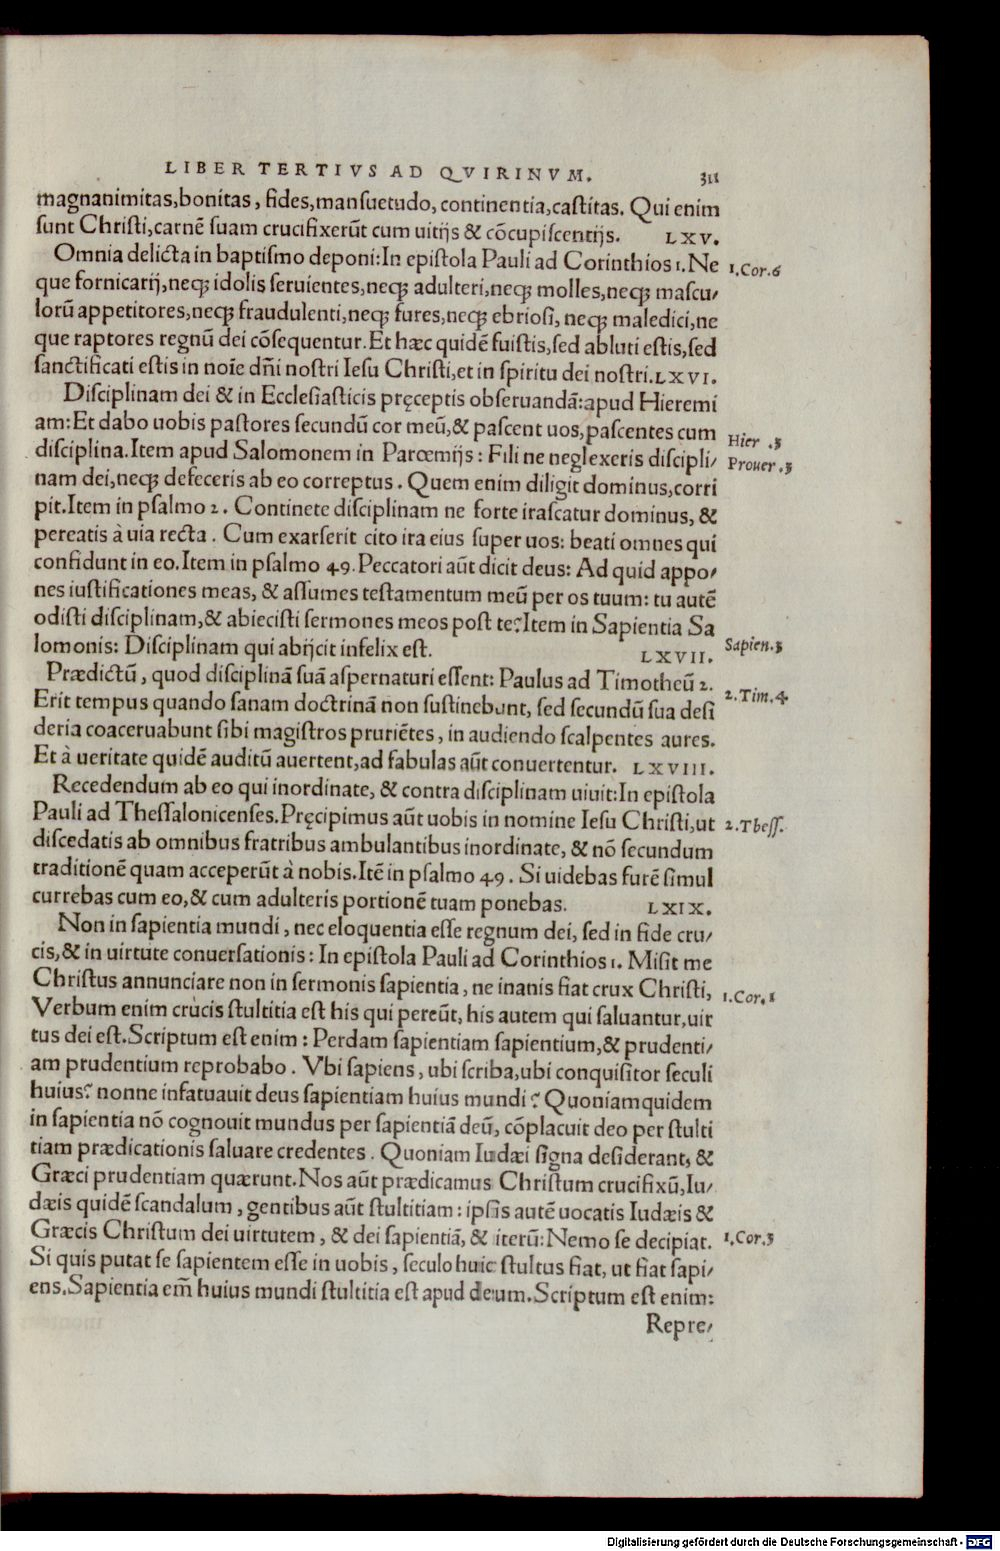 LIBER TERTIVS AD QVIRINVM. 311
magnanimitas,bonitas, fides,mansuetudo, continentia,castitas. Qui enim
sunt Christi,carnē suam crucifixerūt cum uitijs & cōcupiscentijs. LXV.
Omnia delicta in baptismo deponi:In epistola Pauli ad Corinthios 1.Ne 1.Cor.6
que fornicarij,neq; idolis seruientes,neq; adulteri,neq; molles,neq; mascu-
lorū appetitores,neq; fraudulenti,neq; fures,neq; ebriosi, neq; maledici,ne
que raptores regnū dei cōsequentur.Et hæc quidē fuistis,sed abluti estis,sed
sanctificati estis in noīe dn̄i nostri Iesu Christi,et in spiritu dei nostri.LXVI.
Disciplinam dei & in Ecclesiasticis pręceptis obseruandā:apud Hieremi
am:Et dabo uobis pastores secundū cor meū,& pascent uos,pascentes cum Hier .3
disciplina.Item apud Salomonem in Parœmijs: Fili ne neglexeris discipli- Prouer.3
nam dei,neq; defeceris ab eo correptus. Quem enim diligit dominus,corri
pit.Item in psalmo 2. Continete disciplinam ne forte irascatur dominus, &
pereatis à uia recta. Cum exarserit cito ira eius super uos: beati omnes qui
confidunt in eo.Item in psalmo 49.Peccatori aūt dicit deus: Ad quid appo-
nes iustificationes meas, & assumes testamentum meū per os tuum: tu autē
odisti disciplinam,& abiecisti sermones meos post te?Item in Sapientia Sa
lomonis: Disciplinam qui abijcit infelix est. LXVII. Sapien.3
Prædictū, quod disciplinā suā aspernaturi essent: Paulus ad Timotheū 2. 2.Tim.4
Erit tempus quando sanam doctrinā non sustinebunt, sed secundū sua desi
deria coaceruabunt sibi magistros pruriētes, in audiendo scalpentes aures.
Et à ueritate quidē auditū auertent,ad fabulas aūt conuertentur. LXVIII.
Recedendum ab eo qui inordinate, & contra disciplinam uiuit:In epistola
Pauli ad Thessalonicenses.Pręcipimus aūt uobis in nomine Iesu Christi,ut 2.Thess.
discedatis ab omnibus fratribus ambulantibus inordinate, & nō secundum
traditionē quam acceperūt à nobis.Itē in psalmo 49. Si uidebas furē simul
currebas cum eo,& cum adulteris portionē tuam ponebas. LXIX.
Non in sapientia mundi, nec eloquentia esse regnum dei, sed in fide cru-
cis,& in uirtute conuersationis: In epistola Pauli ad Corinthios 1. Misit me
Christus annunciare non in sermonis sapientia, ne inanis fiat crux Christi, 1.Cor.1
Verbum enim crucis stultitia est his qui pereūt, his autem qui saluantur,uir
tus dei est.Scriptum est enim: Perdam sapientiam sapientium,& prudenti-
am prudentium reprobabo. Vbi sapiens, ubi scriba,ubi conquisitor seculi
huius? nonne infatuauit deus sapientiam huius mundi? Quoniamquidem
in sapientia nō cognouit mundus per sapientiā deū, cōplacuit deo per stulti
tiam prædicationis saluare credentes. Quoniam Iudæi signa desiderant, &
Græci prudentiam quærunt.Nos aūt prædicamus Christum crucifixū,Iu-
dæis quidē scandalum, gentibus aūt stultitiam: ipsis autē uocatis Iudæis &
Græcis Christum dei uirtutem, & dei sapientiā, & iterū:Nemo se decipiat. 1.Cor.3
Si quis putat se sapientem esse in uobis, seculo huic stultus fiat, ut fiat sapi-
ens.Sapientia em̄ huius mundi stultitia est apud deum.Scriptum est enim:
Repre-
Digitalisierung gefördert durch die Deutsche Forschungsgemeinschaft - DFG